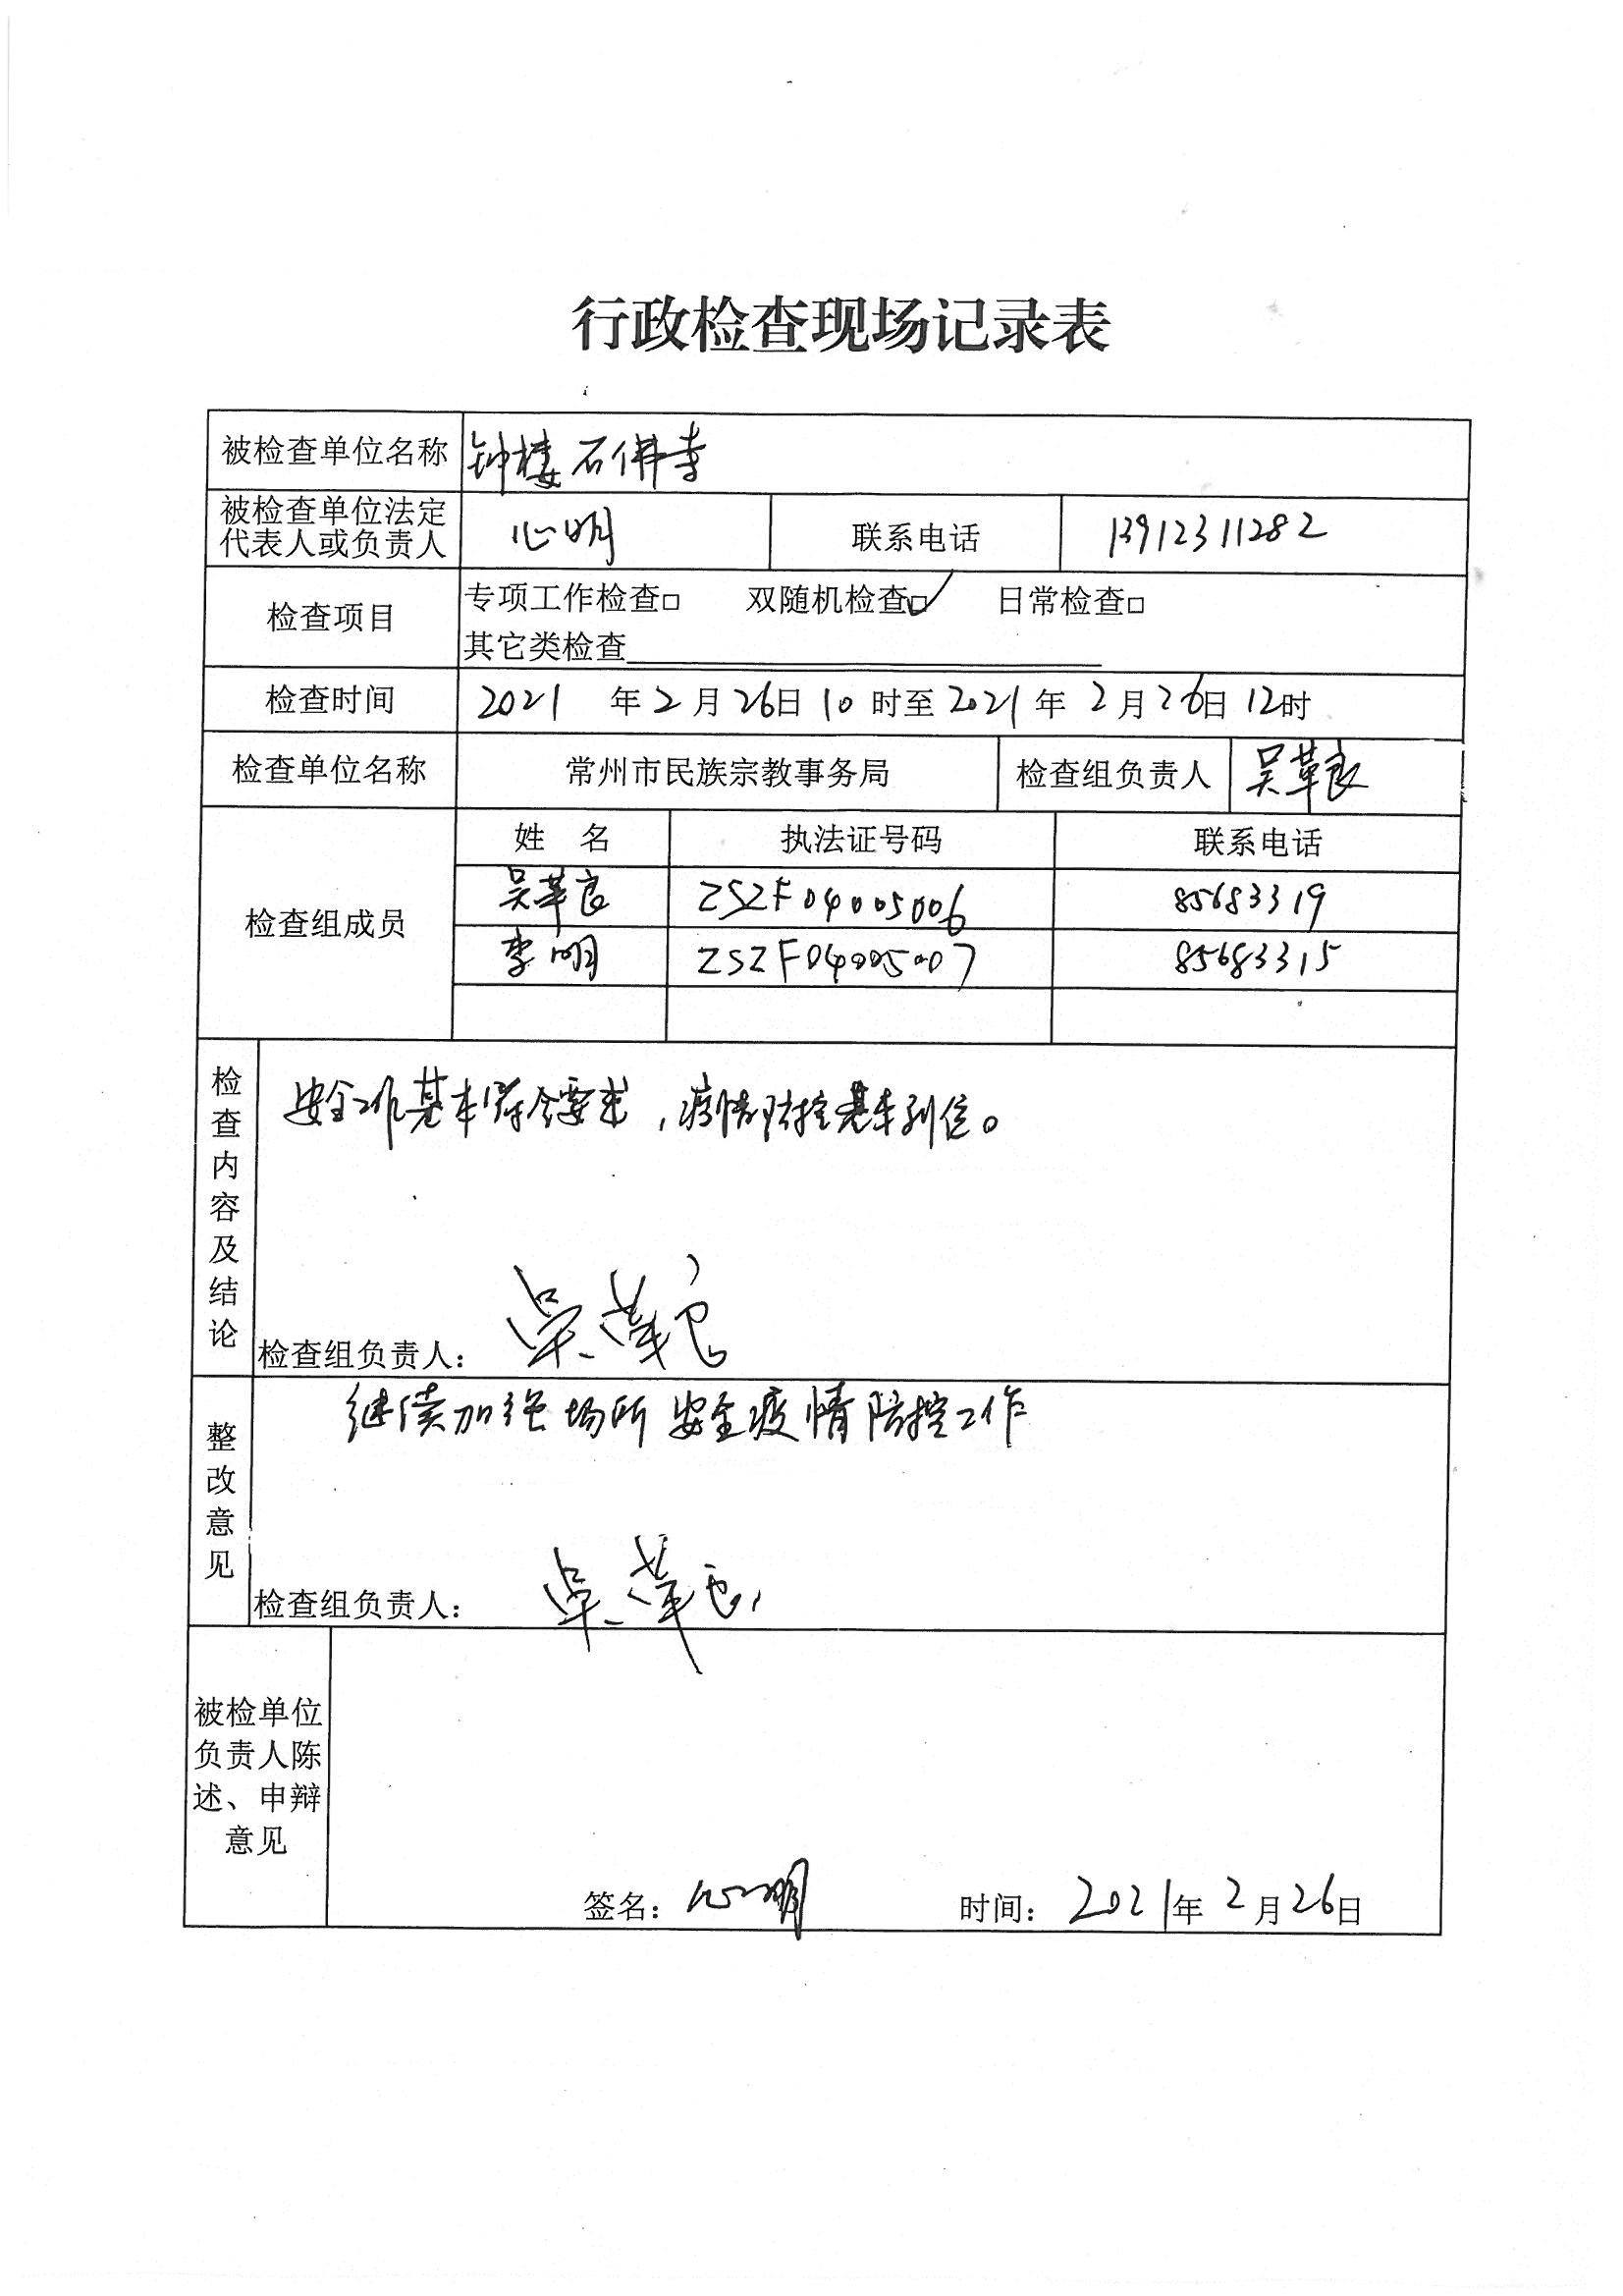 行政检查现场记录表
被检查单位名称 钟楼石佛寺
被检查单位法定代表人或负责人 心明 联系电话 13912311282
检查项目 专项工作检查□ 双随机检查☑ 日常检查□
其它类检查
检查时间 2021 年 2 月 26 日 10 时至 2021 年 2 月 26 日 12 时
检查单位名称 常州市民族宗教事务局 检查组负责人 吴革良
检查组成员
姓 名 执法证号码 联系电话
吴革良 ZSZF04005006 85683319
李明 ZSZF04005007 85683315
检查内容及结论
安全工作基本符合要求，疫情防控基本到位。
检查组负责人： 吴革良
整改意见
继续加强场所安全疫情防控工作
检查组负责人： 吴革良
被检单位负责人陈述、申辩意见
签名： 心明 时间： 2021 年 2 月 26 日